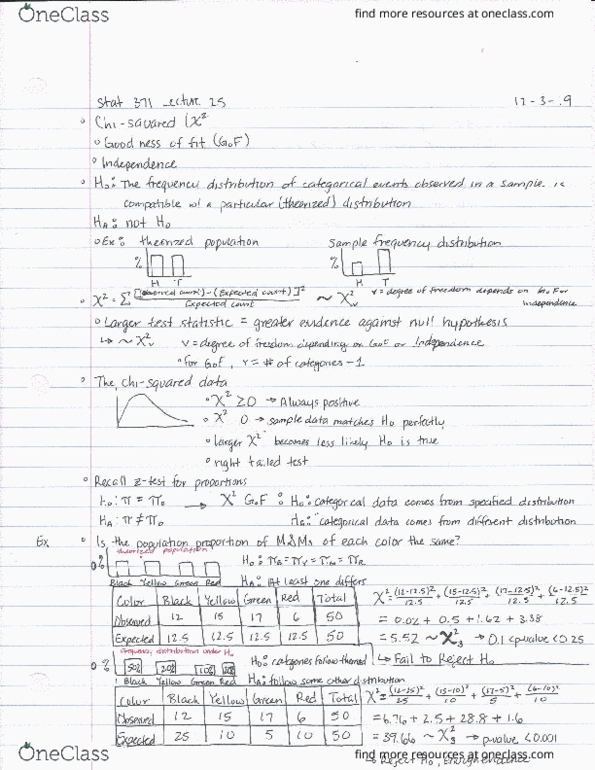 OneClass
find more resources at oneclass.com
Stat 371 Lecture 25 12-3-19
Chi-squared (χ²
Goodness of fit (GoF)
Independence
H₀: The frequency distribution of categorical events observed in a sample is
compatible w/ a particular (theorized) distribution
Hₐ: not H₀
Ex: theorized population Sample frequency distribution
% H T % H T
χ² = Σ [(observed count)-(Expected count)]² / Expected count ~ χ²ᵥ v = degree of freedom depends on GoF or Independence
Larger test statistic = greater evidence against null hypothesis
↳ ~ χ²ᵥ v = degree of freedom depending on GoF or Independence
for GoF, v = # of categories - 1
The chi-squared data
χ² ≥ 0 → Always positive
χ² 0 → sample data matches H₀ perfectly
larger χ² becomes less likely H₀ is true
right tailed test
Recall z-test for proportions
H₀: π = π₀ → χ² GoF: H₀: categorical data comes from specified distribution
Hₐ: π ≠ π₀ Hₐ: categorical data comes from different distribution
Ex Is the population proportion of M&Ms of each color the same?
theorized population
% Black Yellow Green Red
H₀: π_B = π_Y = π_G = π_R
Hₐ: At least one differs
Color Black Yellow Green Red Total
Observed 12 15 17 6 50
Expected 12.5 12.5 12.5 12.5 50
χ² = (12-12.5)²/12.5 + (15-12.5)²/12.5 + (17-12.5)²/12.5 + (6-12.5)²/12.5
= 0.02 + 0.5 + 1.62 + 3.38
= 5.52 ~ χ²₃ → 0.1 < pvalue < 0.25
↳ Fail to Reject H₀
distribution under H₀
% 50% 20% 10%
Black Yellow Green Red
H₀: categories follow themed
Hₐ: follow some other distribution
Color Black Yellow Green Red Total
Observed 12 15 17 6 50
Expected 25 10 5 10 50
χ² = (12-25)²/25 + (15-10)²/10 + (17-5)²/5 + (6-10)²/10
= 6.76 + 2.5 + 28.8 + 1.6
= 39.66 ~ χ²₃ → pvalue < 0.001
Reject H₀,
OneClass
find more resources at oneclass.com